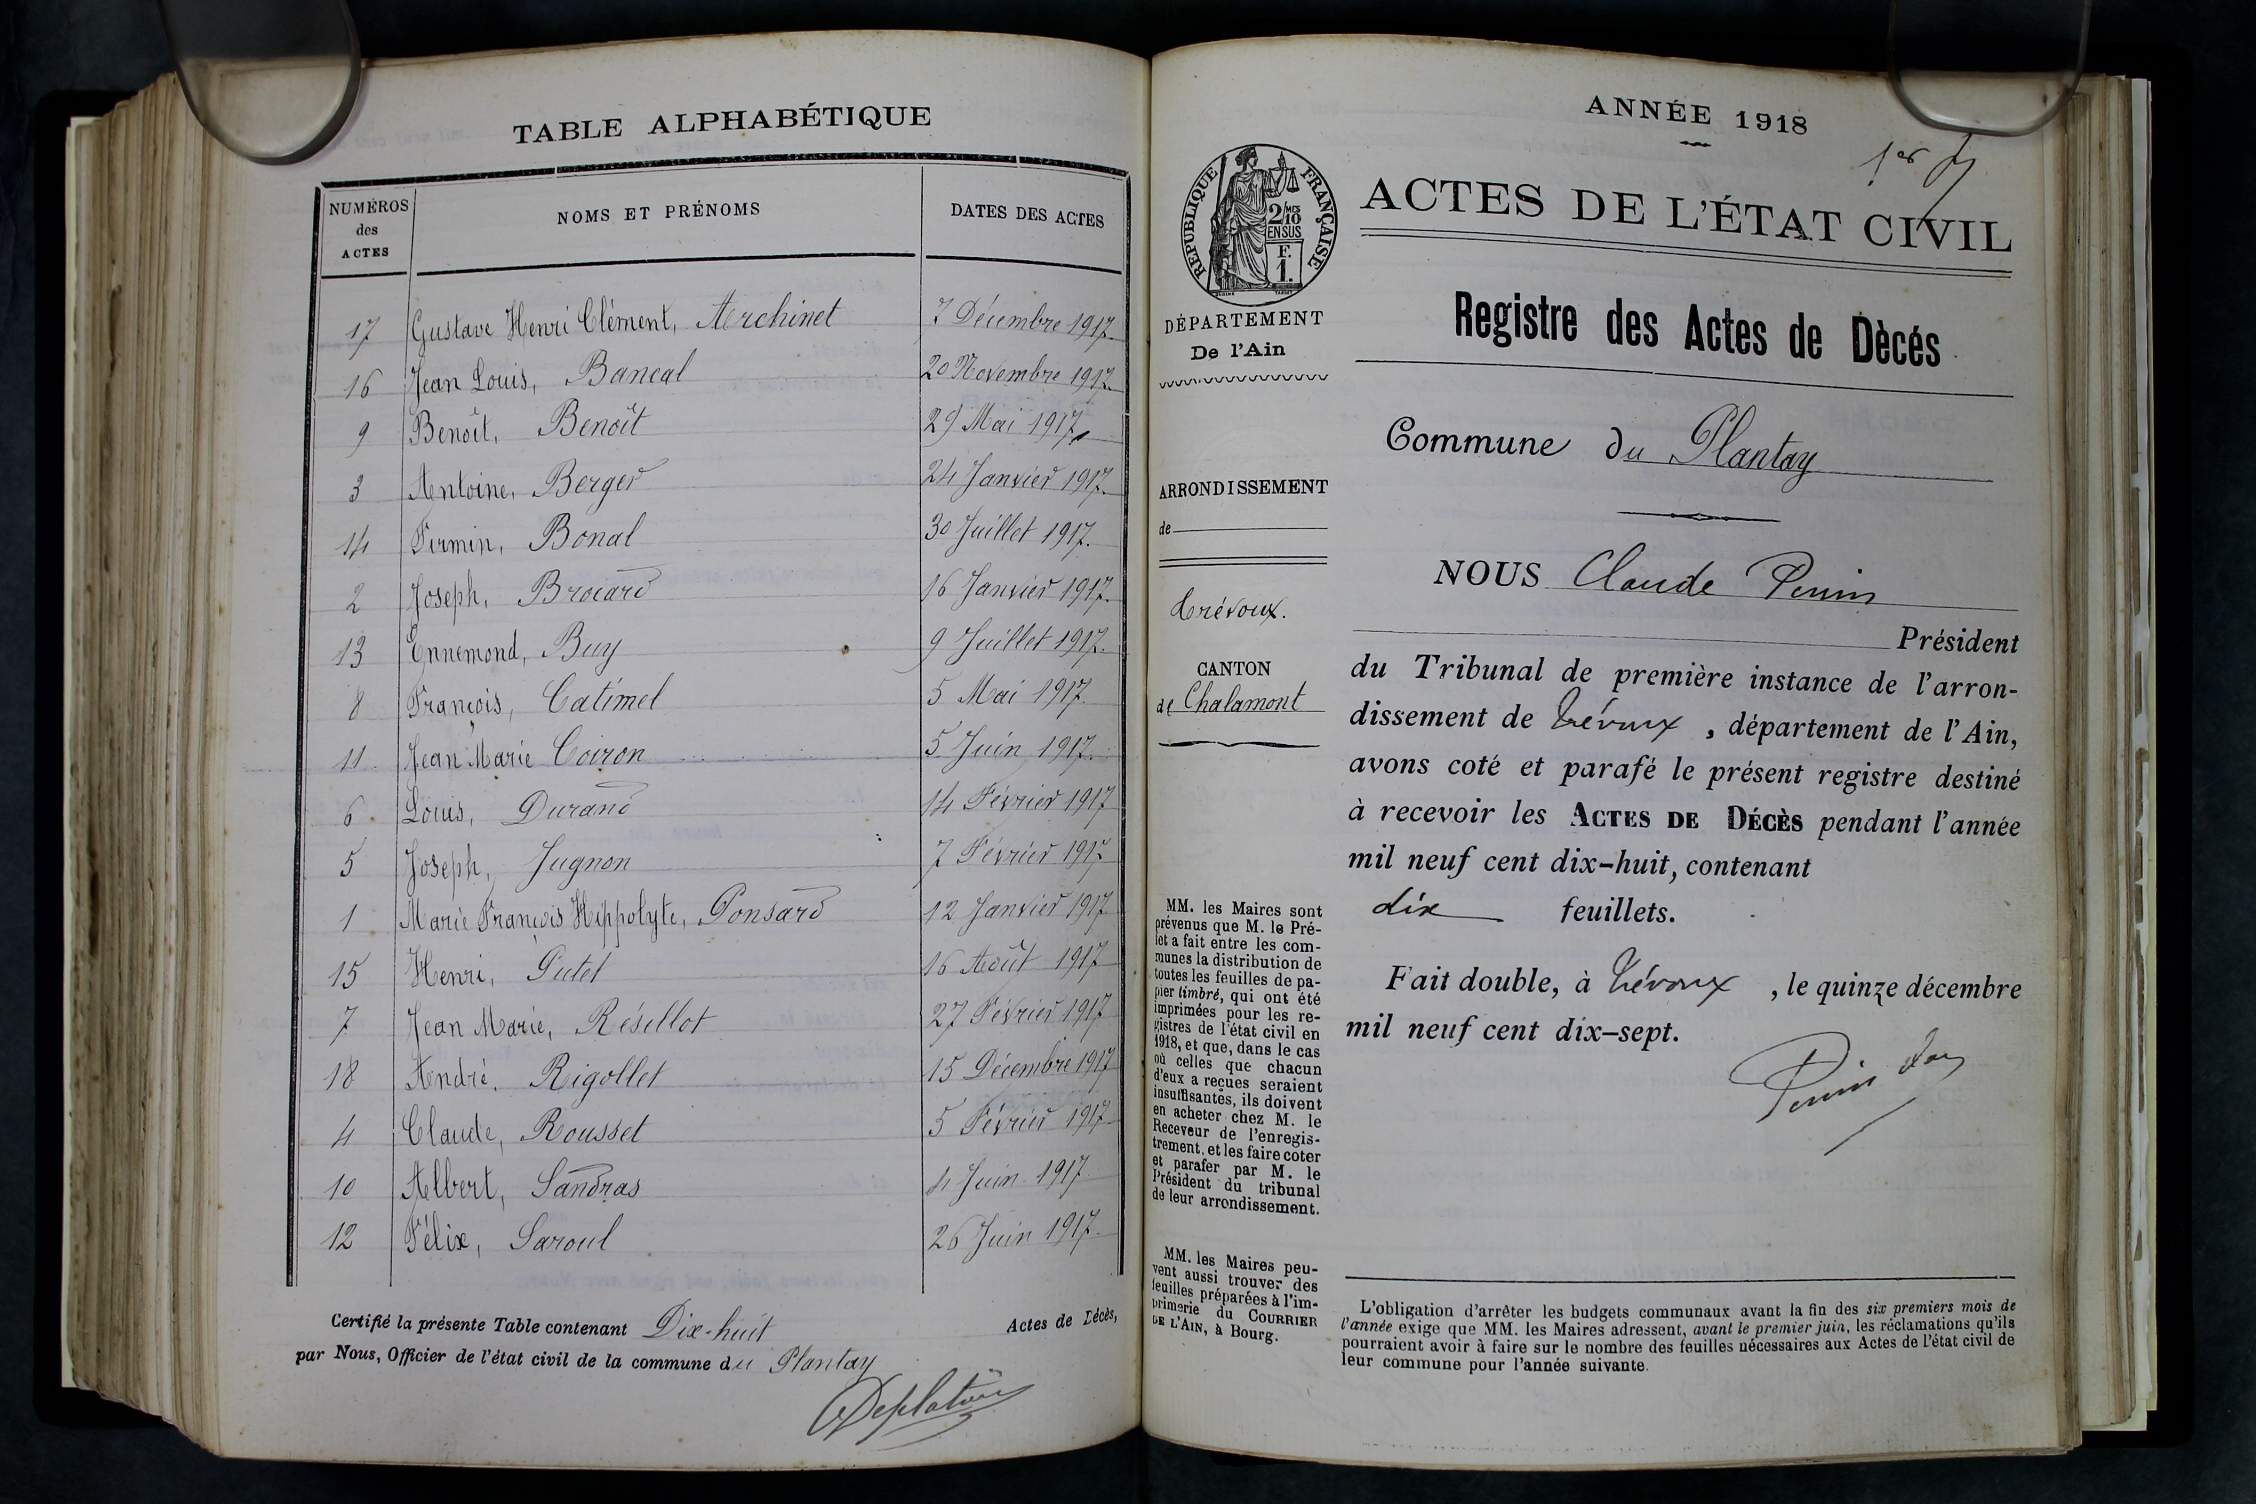 TABLE ALPHABÉTIQUE
NUMÉROS des ACTES
NOMS ET PRÉNOMS
DATES DES ACTES
17 Gustave Henri Clément, Archinet 7 Décembre 1917.
16 Jean Louis, Bancal 20 Novembre 1917.
9 Benoît, Benoît 29 Mai 1917.
3 Antoine, Berger 24 Janvier 1917.
14 Firmin, Bonal 30 Juillet 1917.
2 Joseph, Brocard 16 Janvier 1917.
13 Ennemond, Buy 9 Juillet 1917.
8 François, Catimel 5 Mai 1917.
11 Jean Marie Coiron 5 Juin 1917.
6 Louis, Durand 14 Février 1917
5 Joseph, Jugnon 7 Février 1917
1 Marie François Hippolyte, Ponsard 12 Janvier 1917
15 Henri, Putet 16 Août 1917
7 Jean Marie, Résillot 27 Février 1917
18 André, Rigollet 15 Décembre 1917
4 Claude, Rousset 5 Février 1917
10 Albert, Sandras 4 Juin 1917
12 Félix, Saroul 26 Juin 1917.
Certifié la présente Table contenant Dix-huit Actes de Décès,
par Nous, Officier de l'état civil de la commune du Plantay
ANNÉE 1918
1er
ACTES DE L'ÉTAT CIVIL
RÉPUBLIQUE FRANÇAISE
2/10 MES
EN SUS
F.
1.
DÉPARTEMENT
De l'Ain
ARRONDISSEMENT
de
Trévoux.
CANTON
de Chalamont
MM. les Maires sont
prévenus que M. le Pré-
fet a fait entre les com-
munes la distribution de
toutes les feuilles de pa-
pier timbré, qui ont été
imprimées pour les re-
gistres de l'état civil en
1918, et que, dans le cas
où celles que chacun
d'eux a reçues seraient
insuffisantes, ils doivent
en acheter chez M. le
Receveur de l'enregis-
trement, et les faire coter
et parafer par M. le
Président du tribunal
de leur arrondissement.
MM. les Maires peu-
vent aussi trouver des
feuilles préparées à l'im-
primerie du COURRIER
DE L'AIN, à Bourg.
Registre des Actes de Dècés
Commune du Plantay
NOUS Claude Perrin
Président
du Tribunal de première instance de l'arron-
dissement de Trévoux, département de l'Ain,
avons coté et parafé le présent registre destiné
à recevoir les ACTES DE DÉCÈS pendant l'année
mil neuf cent dix-huit, contenant
dix feuillets.
Fait double, à Trévoux, le quinze décembre
mil neuf cent dix-sept.
Perrin
L'obligation d'arrêter les budgets communaux avant la fin des six premiers mois de
l'année exige que MM. les Maires adressent, avant le premier juin, les réclamations qu'ils
pourraient avoir à faire sur le nombre des feuilles nécessaires aux Actes de l'état civil de
leur commune pour l'année suivante.